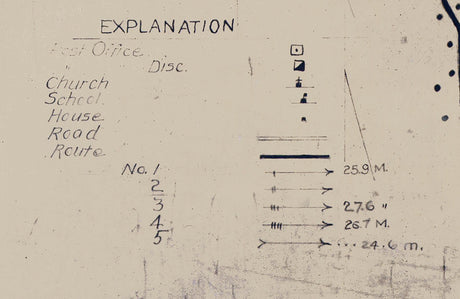 EXPLANATION
Post Office
" Disc.
Church
School.
House
Road
Route
No. 1 25.9 M.
2
3 27.6 "
4 26.7 M.
5 24.6 m.